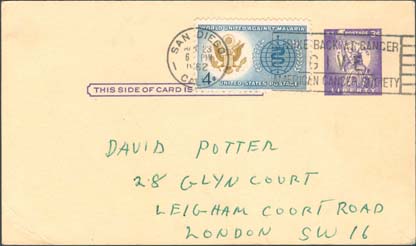 SAN DIEGO
23
PM
1962
WORLD UNITED AGAINST MALARIA
4¢
UNITED STATES POSTAGE
STRIKE BACK AT CANCER
GIVE
AMERICAN CANCER SOCIETY
LIBERTY
THIS SIDE OF CARD IS
DAVID POTTER
28 GLYN COURT
LEIGHAM COURT ROAD
LONDON SW 16